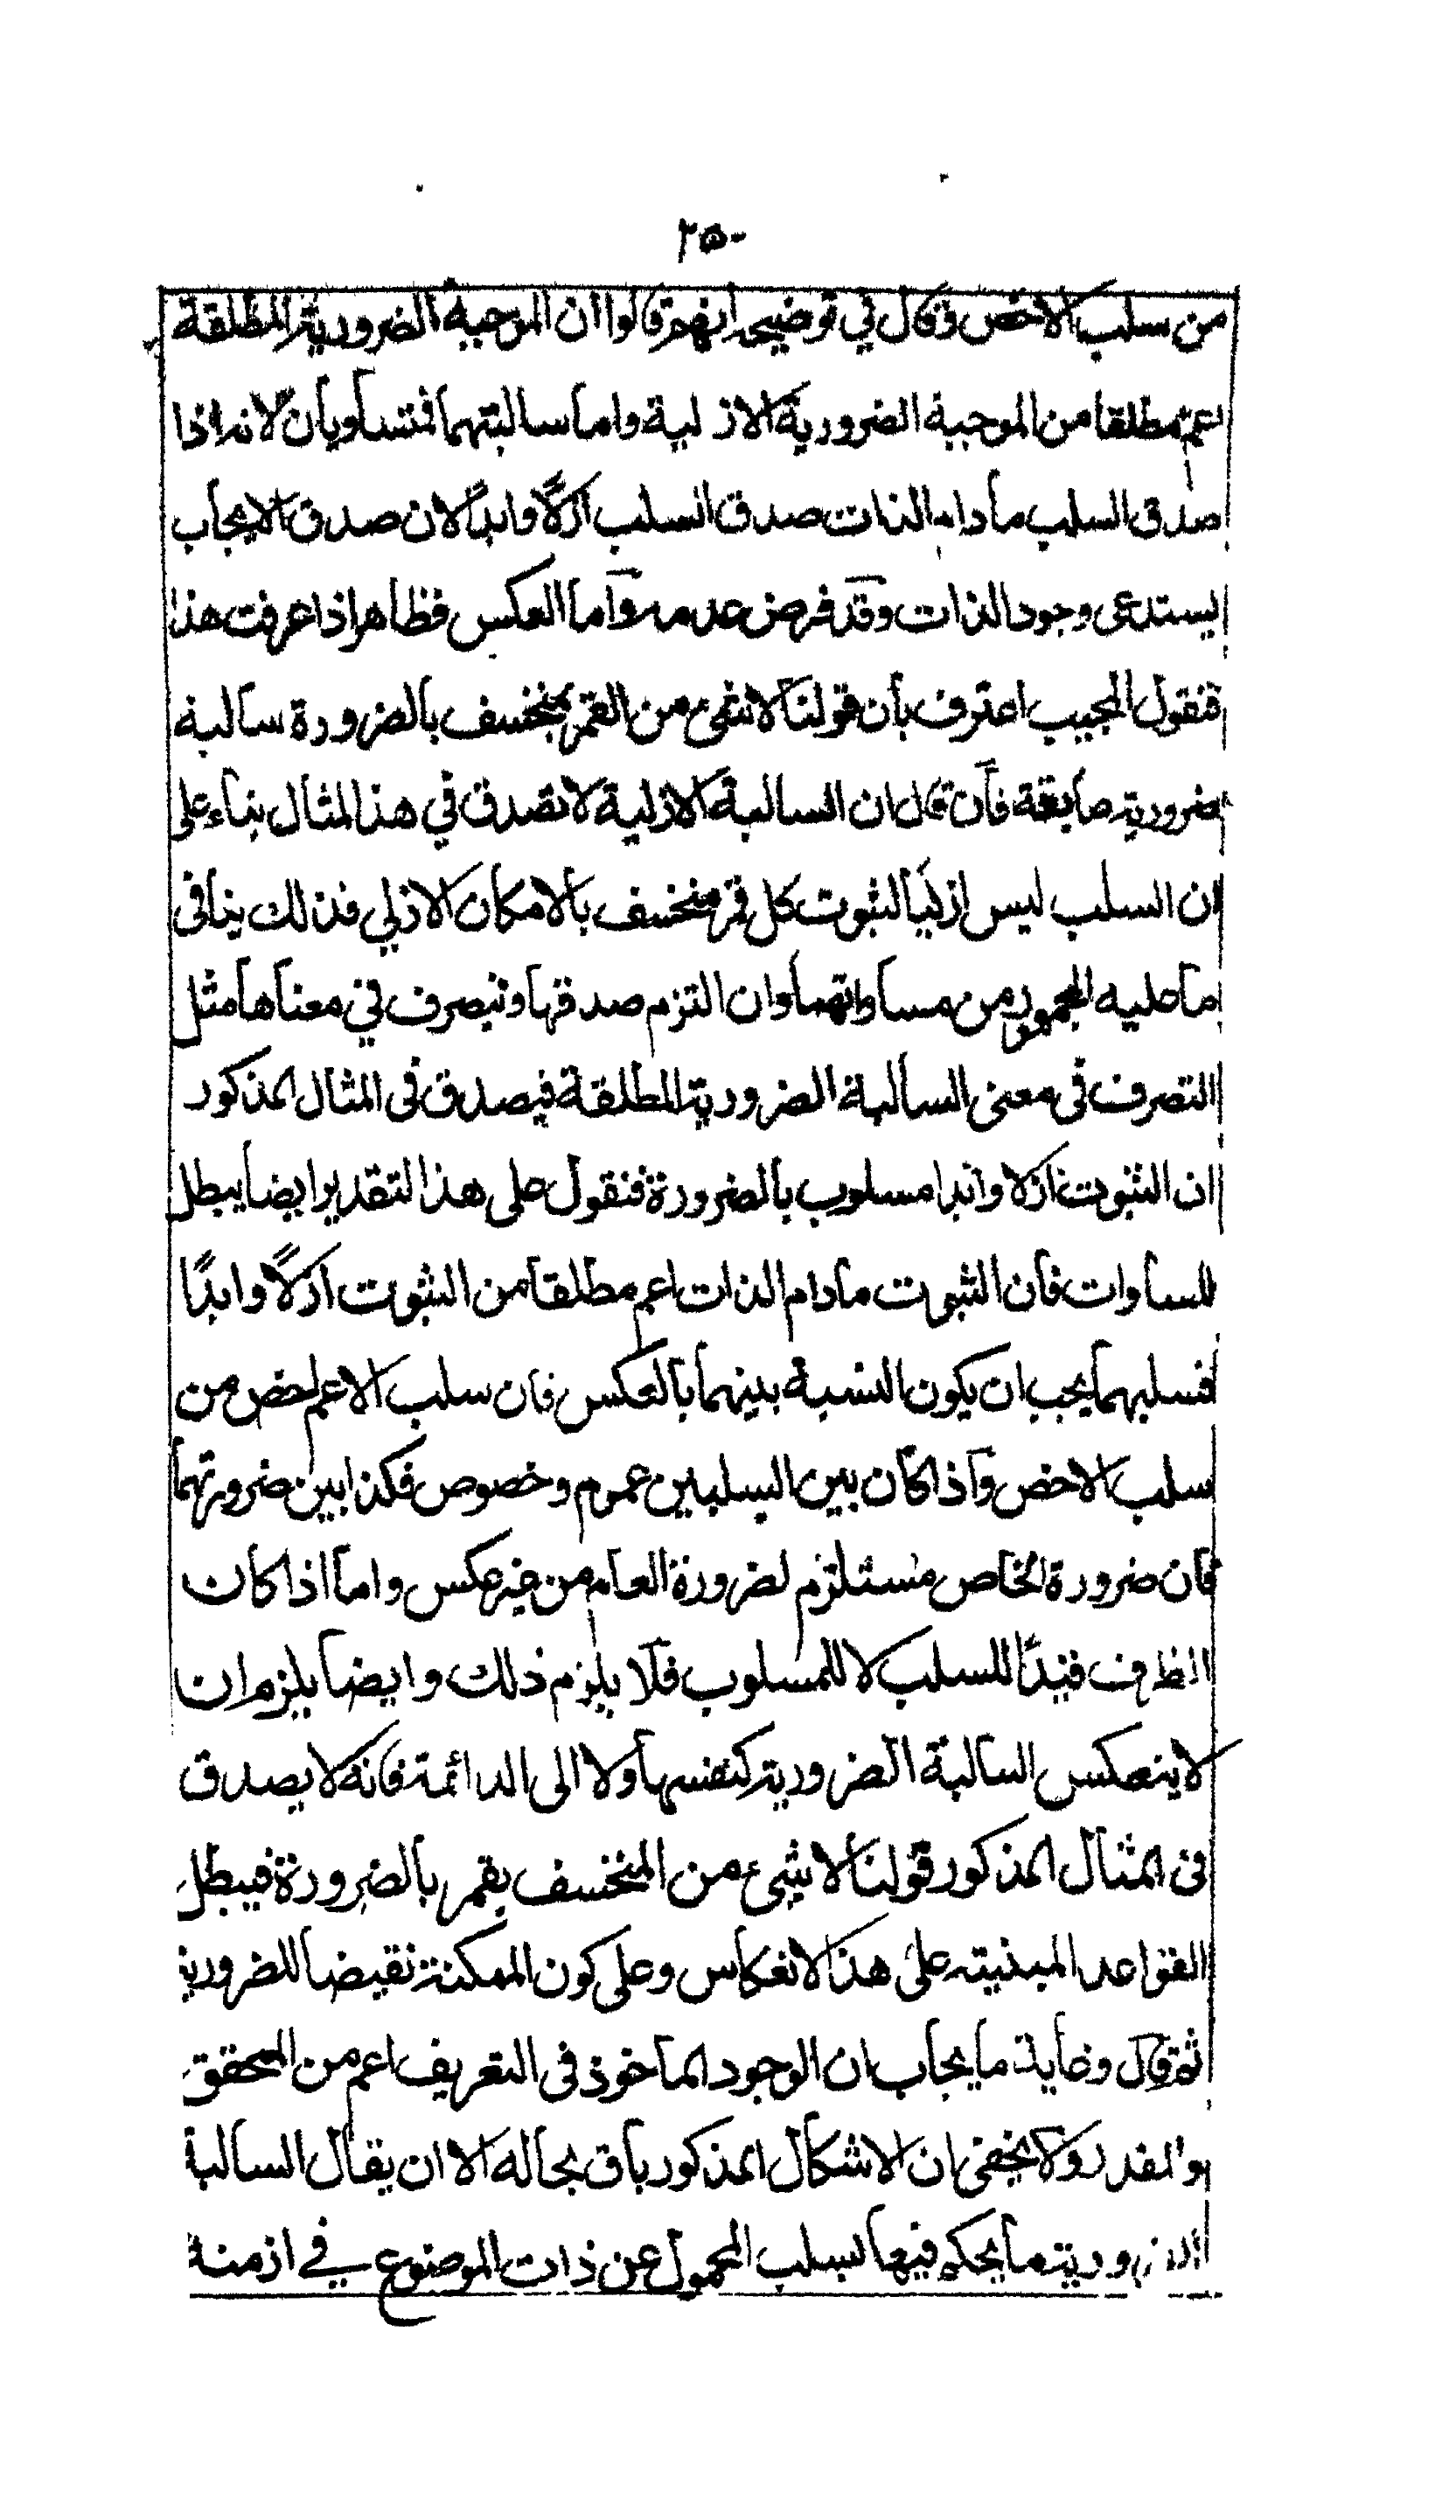 ٢٥٠
من سلب الاخص وقال في توضيحه انهم قالوا ان الموجبة الضرورية المطلقة
اعم مطلقا من الموجبة الضرورية الازلية واما سالبتهما فمتساويان لانه اذا
صدق السلب مادام الذات صدق السلب ازلًا وابدًا لان صدق الايجاب
يستدعى وجود الذات وقد فرض عدمه واما العكس فظاهر اذا عرفت هذا
فنقول المجيب اعترف بان قولنا لا شئ من القمر بمنخسف بالضرورة سالبة
ضرورية صادقة فان قال ان السالبة الازلية لا تصدق في هذا المثال بناء على
ان السلب ليس ازليا لثبوت كل قمر منخسف بالامكان الازلي فذلك ينافى
ما عليه الجمهور من مساواتهما وان التزم صدقها وتبصرف في معناها مثل
التصرف فى معنى السالبة الضرورية المطلقة فيصدق فى المثال المذكور
ان الثبوت ازلا وابدا مسلوب بالضرورة فنقول على هذا التقدير ايضا يبطل
المساوات فان الثبوت مادام الذات اعم مطلقا من الثبوت ازلًا وابدًا
فسلبهما يجب ان يكون النسبة بينهما بالعكس فان سلب الاعم اخص من
سلب الاخص واذا كان بين السلبين عموم وخصوص فكذا بين ضرورتهما
فان ضرورة الخاص مستلزم لضرورة العام من غير عكس واما اذا كان
الظرف قيدًا للسلب لا للمسلوب فلا يلزم ذلك وايضا يلزم ان
لا ينعكس السالبة الضرورية كنفسها ولا الى الدائمة فانه لا يصدق
فى المثال المذكور قولنا لا شئ من المنخسف بقمر بالضرورة فيبطل
القواعد المبنية على هذا الانعكاس وعلى كون الممكنة نقيضا للضرورية
ثم قال وغاية ما يجاب ان الوجود الماخوذ فى التعريف اعم من المحقق
والمقدر ولا يخفى ان الاشكال المذكور باق بحاله الا ان يقال السالبة
الضرورية ما يحكم فيها بسلب المحمول عن ذات الموضوع في ازمنة